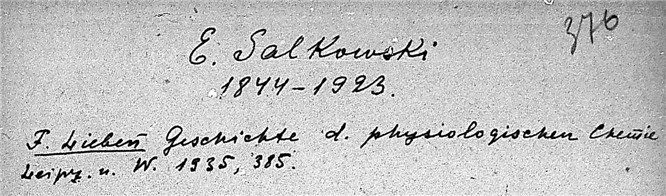 376
E. Salkowski
1844-1923.
F. Lieben Geschichte d. physiologischen Chemie
Leipz. u. W. 1935, 385.